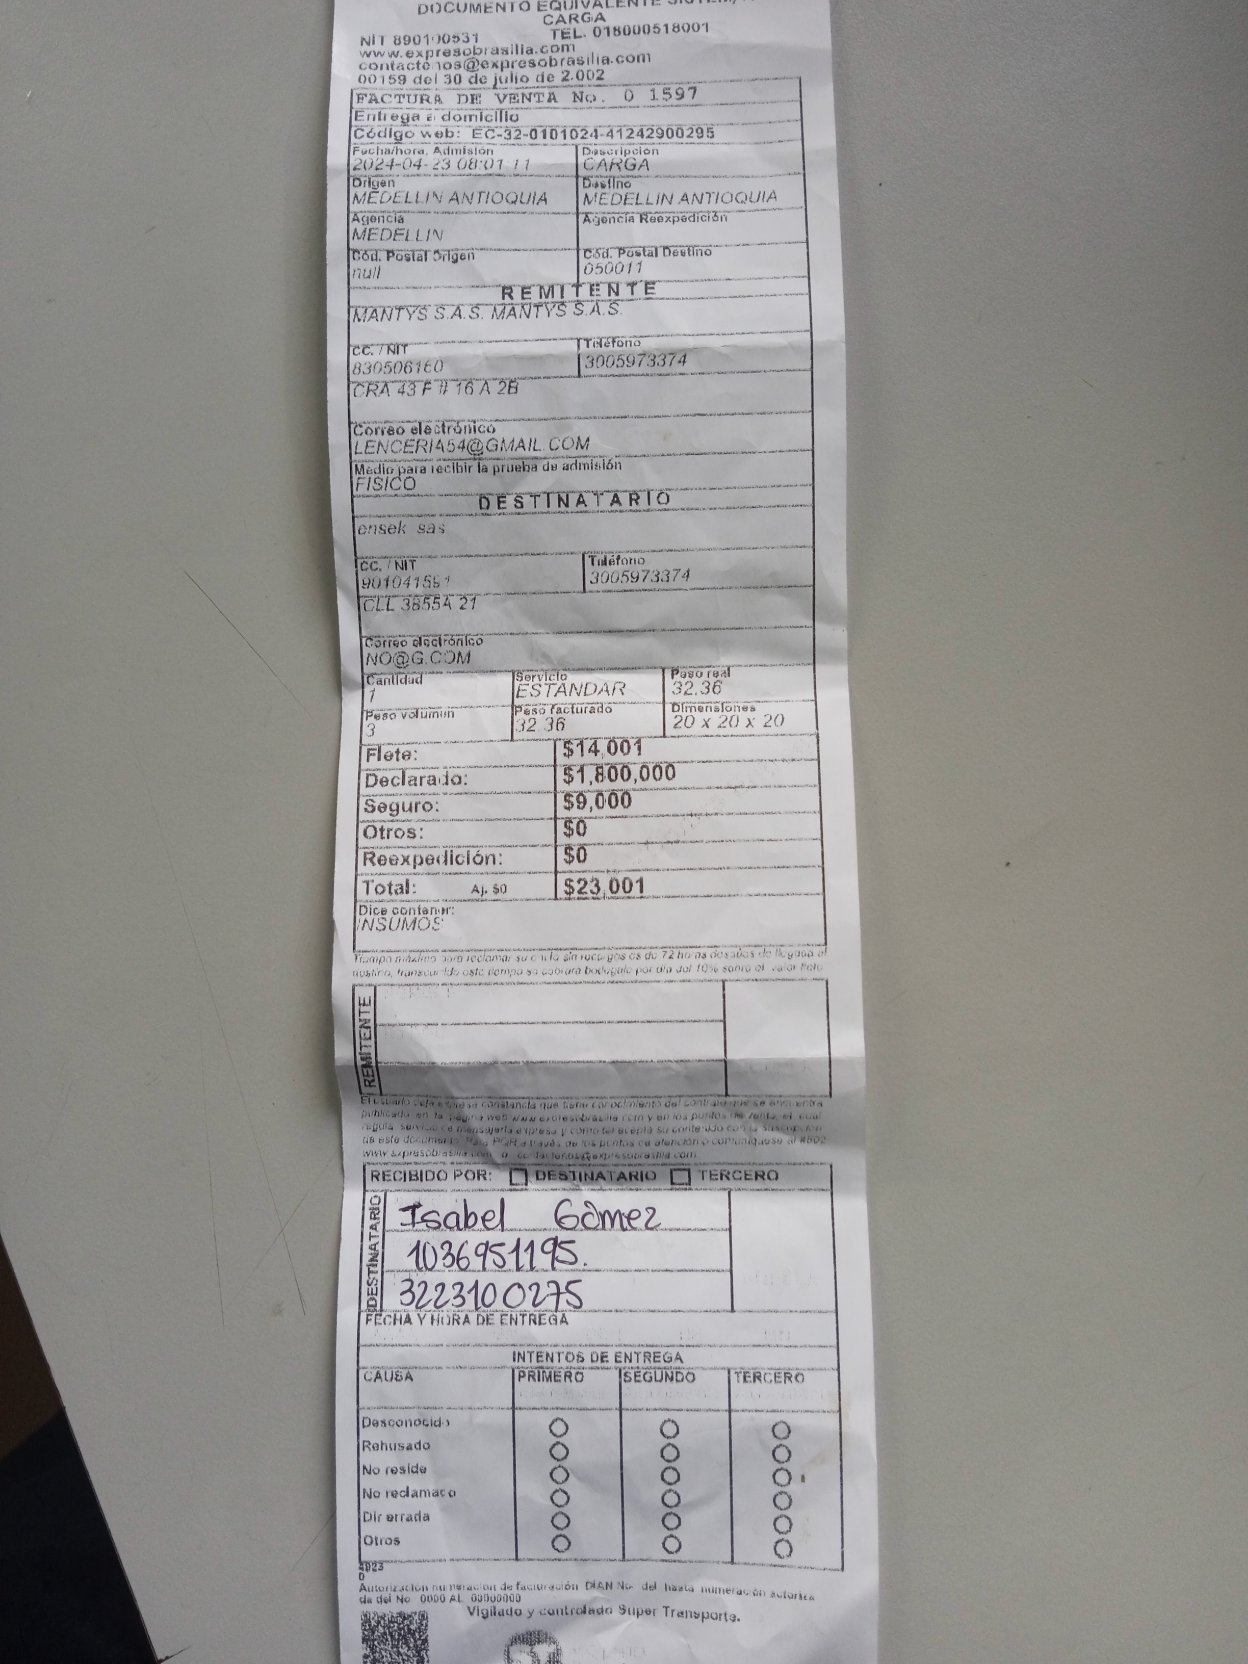 DOCUMENTO EQUIVALENTE
CARGA
NIT 890100531 TEL. 018000518001
www.expresobrasilia.com
contactenos@expresobrasilia.com
00159 del 30 de julio de 2.002
FACTURA DE VENTA No. 0 1597
Entrega a domicilio
Código web: EC-32-0101024-41242900295
Fecha/hora, Admisión Descripción
2024-04-23 08:01:11 CARGA
Origen Destino
MEDELLIN ANTIOQUIA MEDELLIN ANTIOQUIA
Agencia Agencia Reexpedición
MEDELLIN
Cód. Postal Origen Cód. Postal Destino
null 050011
REMITENTE
MANTYS S.A.S. MANTYS S.A.S.
CC. / NIT Teléfono
830506160 3005973374
CRA 43 F # 16 A 2B
Correo electrónico
LENCERIA54@GMAIL.COM
Medio para recibir la prueba de admisión
FISICO
DESTINATARIO
ensek sas
CC. / NIT Teléfono
901041551 3005973374
CLL 3855A 21
Correo electrónico
NO@G.COM
Cantidad Servicio Peso real
1 ESTANDAR 32.36
Peso volumen Peso facturado Dimensiones
3 32.36 20 x 20 x 20
Flete: $14,001
Declarado: $1,800,000
Seguro: $9,000
Otros: $0
Reexpedición: $0
Total: Aj. $0 $23,001
Dice contener:
INSUMOS
Tiempo máximo para reclamar su carga sin recargos es de 72 horas después de llegada al
destino, transcurrido este tiempo se cobrará bodegaje por día del 10% sobre el valor flete
REMITENTE
El usuario deja expresa constancia que tiene conocimiento del contrato que se encuentra
publicado en la página web www.expresobrasilia.com y en los puntos de venta, el cual
regula servicio de mensajería expresa y como tal acepta su contenido con la suscripción
de este documento. Para PQR a través de los puntos de atención o comuníquese al #502
www.expresobrasilia.com o contactenos@expresobrasilia.com
RECIBIDO POR: DESTINATARIO TERCERO
DESTINATARIO
Isabel Gómez
1036951195.
3223100275
FECHA Y HORA DE ENTREGA
INTENTOS DE ENTREGA
CAUSA PRIMERO SEGUNDO TERCERO
Desconocido
Rehusado
No reside
No reclamado
Dir errada
Otros
4923
0
Autorización numeración de facturación DIAN No. del hasta numeración autoriza
da del No 0000 AL 00000000
Vigilado y controlado Super Transporte.